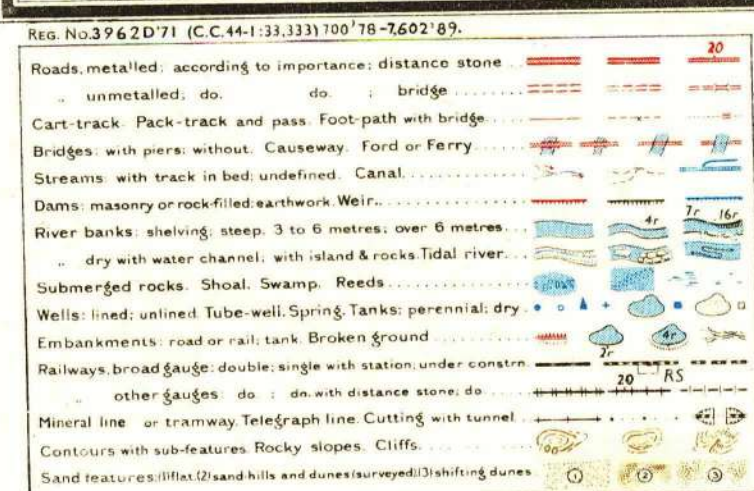 REG. No.3962D'71 (C.C.44-1:33,333) 700'78-7,602'89.
20
Roads, metalled; according to importance; distance stone
„ unmetalled; do. do. ; bridge
Cart-track. Pack-track and pass. Foot-path with bridge
Bridges: with piers; without. Causeway. Ford or Ferry
Streams: with track in bed; undefined. Canal
Dams: masonry or rock-filled; earthwork. Weir
River banks: shelving; steep, 3 to 6 metres; over 6 metres 4r 7r 16r
„ dry with water channel; with island & rocks. Tidal river
Submerged rocks. Shoal. Swamp. Reeds
Wells: lined; unlined. Tube-well. Spring. Tanks: perennial; dry
Embankments: road or rail; tank. Broken ground 2r 4r
Railways, broad gauge: double; single with station; under constrn. RS
„ other gauges: do ; do. with distance stone; do 20
Mineral line or tramway. Telegraph line. Cutting with tunnel
Contours with sub-features. Rocky slopes. Cliffs
Sand features: (1) flat. (2) sand-hills and dunes (surveyed). (3) shifting dunes 1 2 3